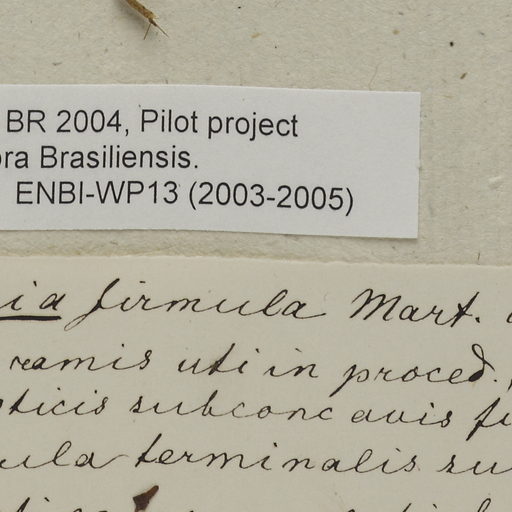 BR 2004, Pilot project
ora Brasiliensis.
ENBI-WP13 (2003-2005)
ia firmula Mart.
ramis uti in proced.,
ticis subconcavis
ula terminalis su